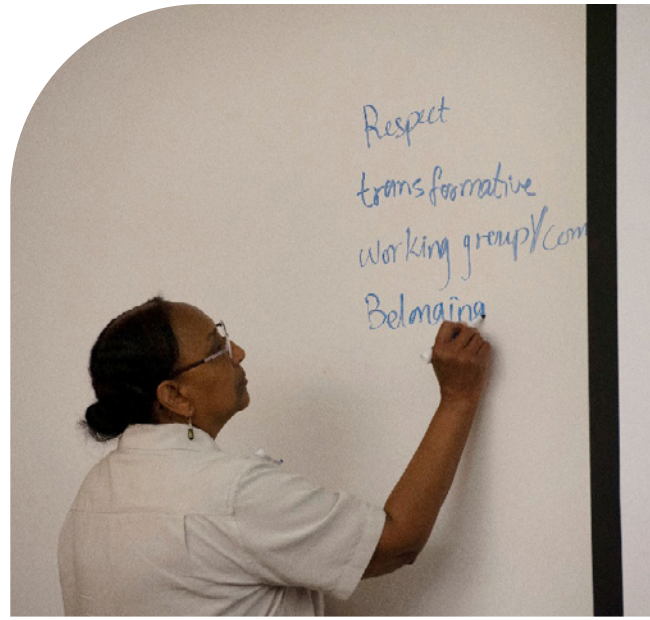 Respect
transformative
working group/com
Belonging